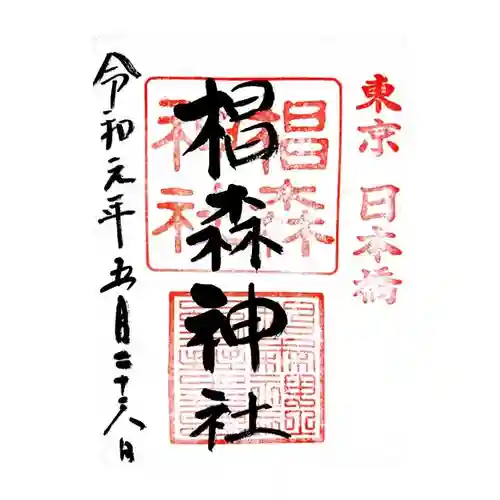 東京 日本橋
椙森神社
椙森
神社
令和元年五月二十六日